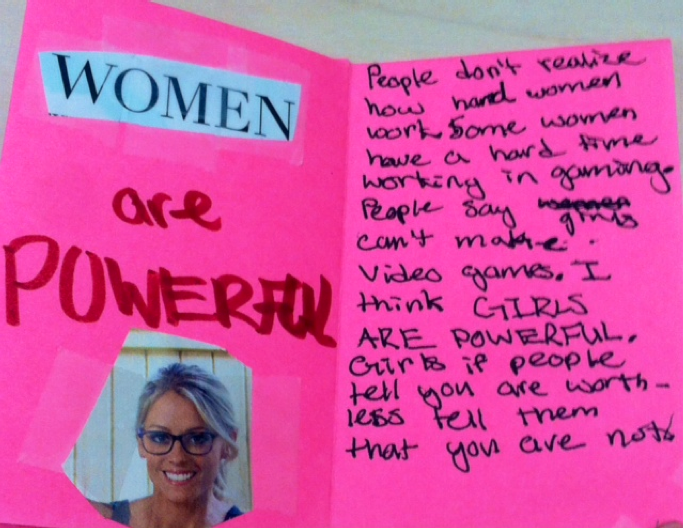 WOMEN
are
POWERFUL
People don't realize
how hard women
work Some women
have a hard time
working in gaming.
People say women girls
can't make
video games. I
think GIRLS
ARE POWERFUL.
Girls if people
tell you are worth-
less tell them
that you are not